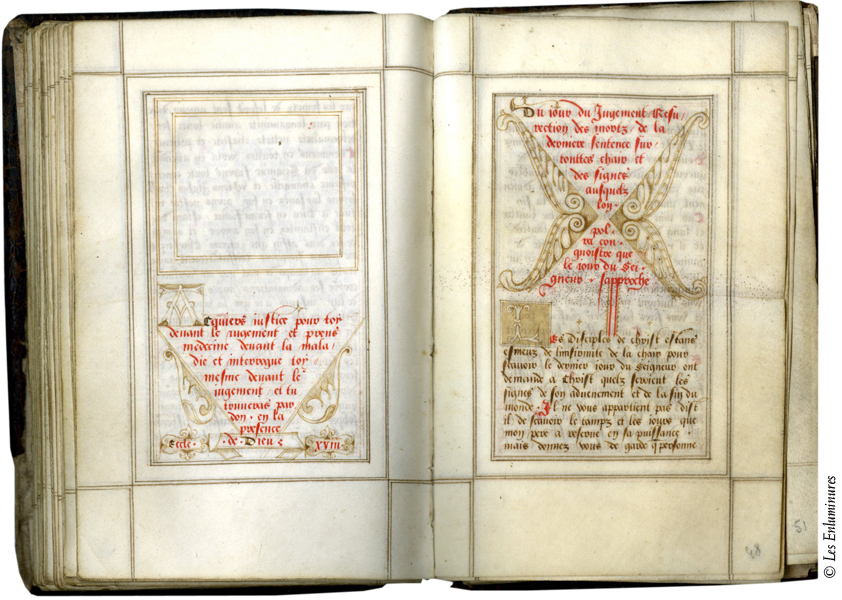 Acquiers iustice pour toy
devant le iugement et prens
medecine devant la mala/
die et interrogue toy
mesme devant le
iugement et tu
trouveras par
don · en la
presence
Eccle · de Dieu · xviii
Du iour du Jugement Resu/
rection des mortz / de la
derniere sentence sur
touttes chair et
des signes
ausquelz
lon ·
pol ·
ra con ·
gnoistre que
le iour du Sei ·
gneur · sapproche
Les Disciples de Christ estans
esmeuz de linfirmite de la chair pour
scavoir le dernier iour du Seigneur ont
demande a Christ quelz seroient les
signes de son advenement et de la fin du
monde · Il ne vous appartient pas dist
il de scavoir le tampz et les iours que
mon pere a reserve en sa puissance
mais donnez vous de garde q personne
48
51
© Les Enluminures